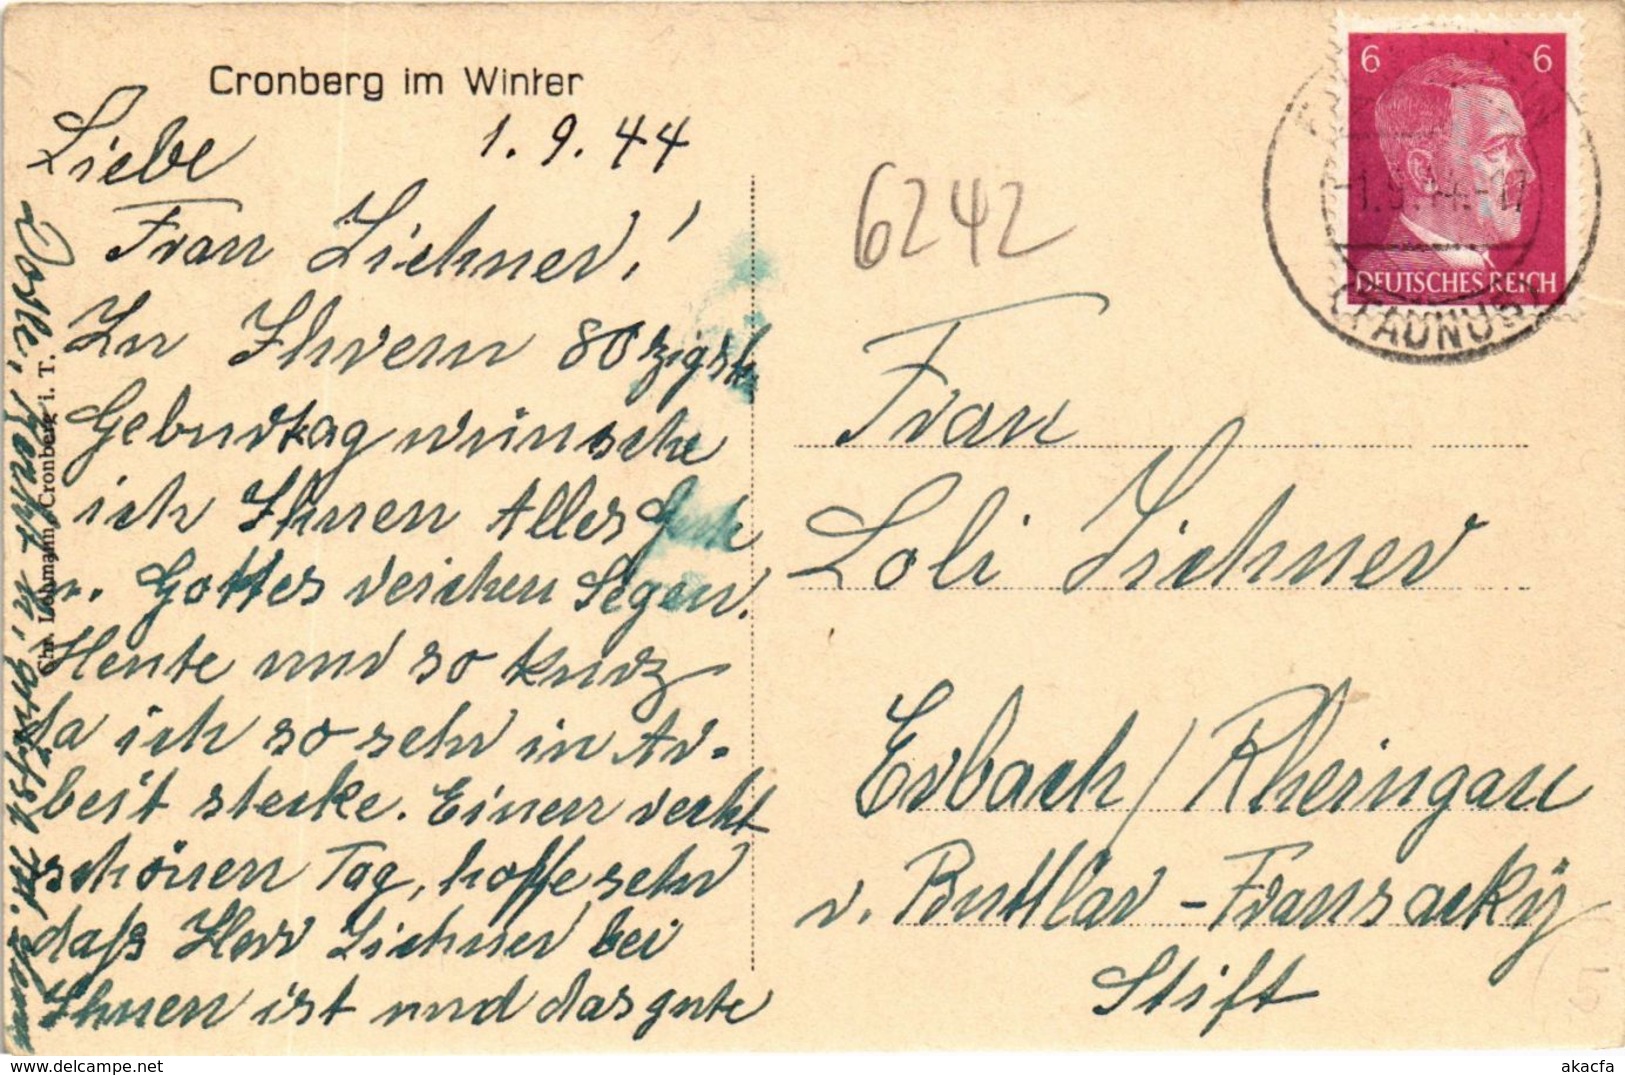 Cronberg im Winter
1.9.44
Liebe
Frau Lichner!
Zu Ihrem 80zigst
Geburtag wünsche
ich Ihnen Alles Gute
u. Gottes reichen Segen.
Heute nur so kurz
da ich so sehr in Ar-
beit stecke. Einen recht
schönen Tag, hoffe sehr
daß Herr Lichner bei
Ihnen ist und das gute
Dorle, Herzl. u. grüßt
Chr. Lohmann, Cronberg i. T.
6242
6 6
DEUTSCHES REICH
-1.9.44.-17
(TAUNUS)
Frau
Loli Lichner
Erbach / Rheingau
v. Buttlar-Fransecky
Stift
5
akacfa